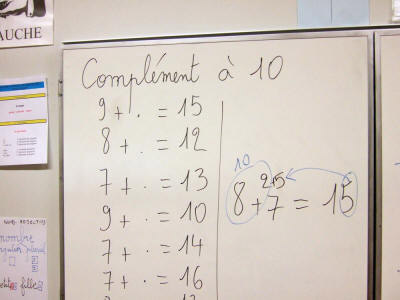 GAUCHE
Complément à 10
9 + . = 15
8 + . = 12
7 + . = 13
9 + . = 10
7 + . = 14
7 + . = 16
10
2+5
8 + 7 = 15
nombre
singulier pluriel
fille